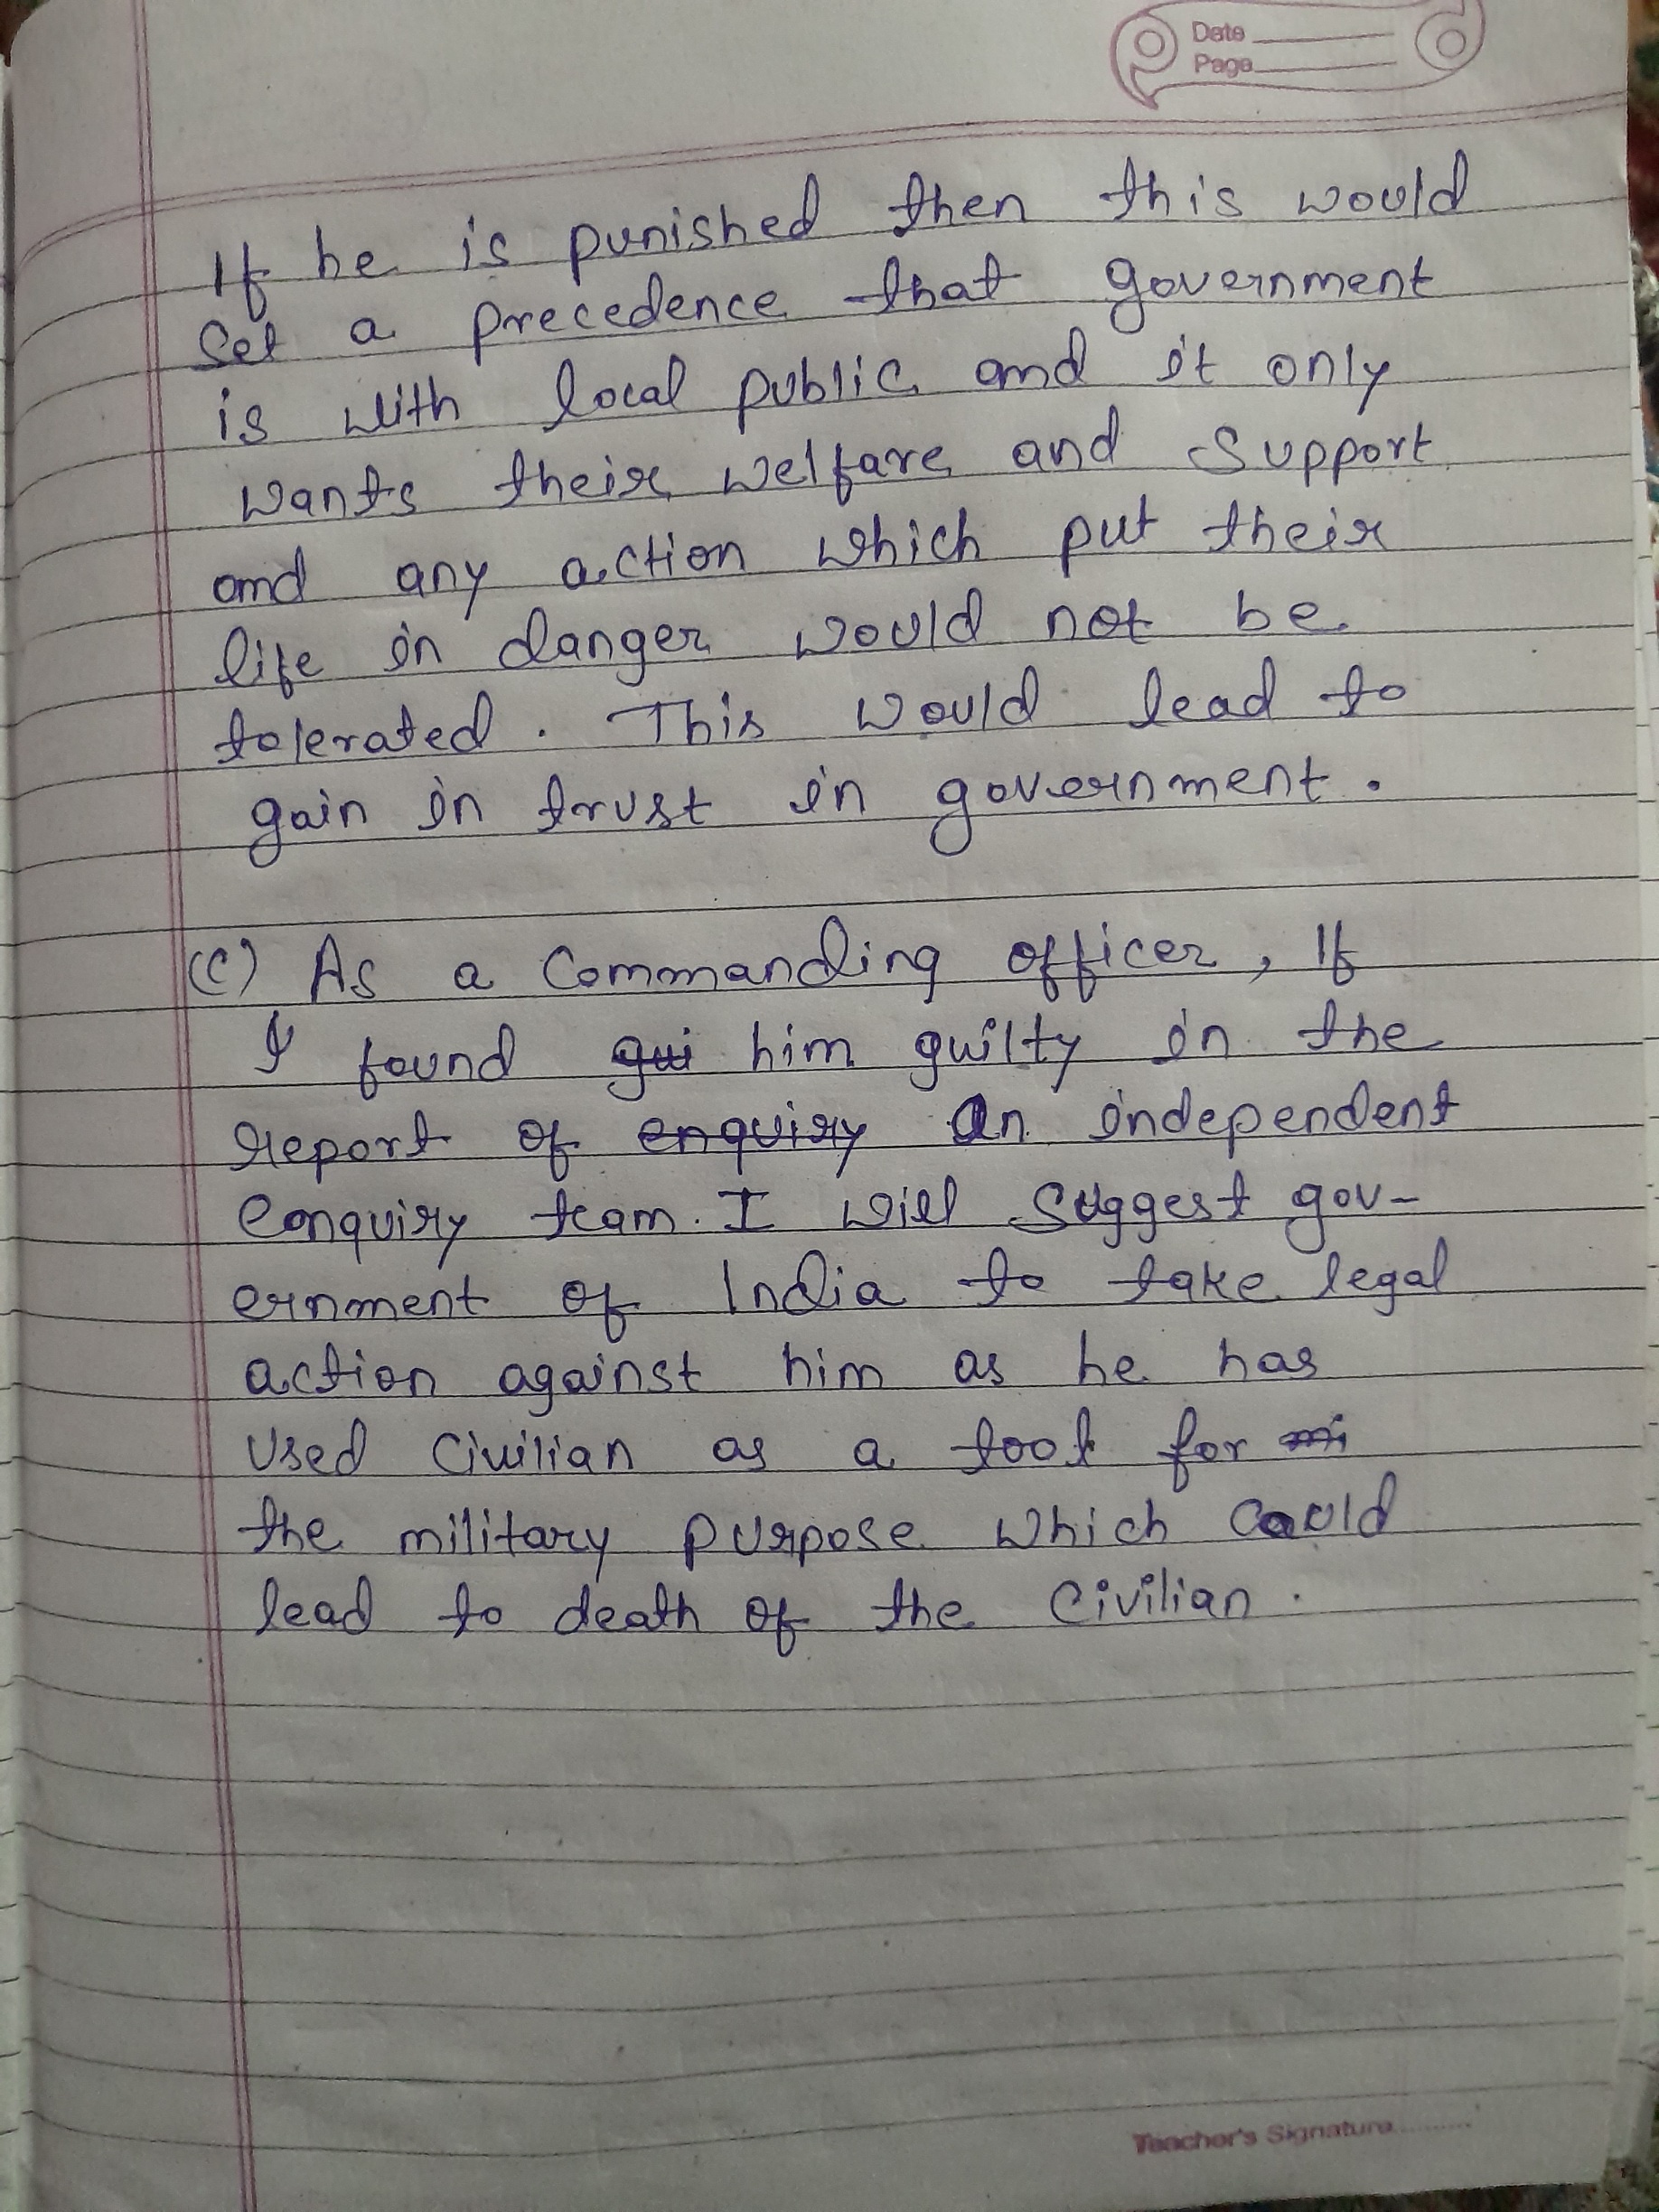 Date
Page
If he is punished then this would
set a precedence that government
is with local public and it only
wants their welfare and support
and any action which put their
life in danger would not be
tolerated. This would lead to
gain in trust in government.
(C) As a commanding officer, If
I found gui him guilty in the
report of enquiry an independent
enquiry team. I will suggest gov-
ernment of India to take legal
action against him as he has
used civilian as a tool for mi
the military purpose which could
lead to death of the civilian.
Teacher's Signature..........